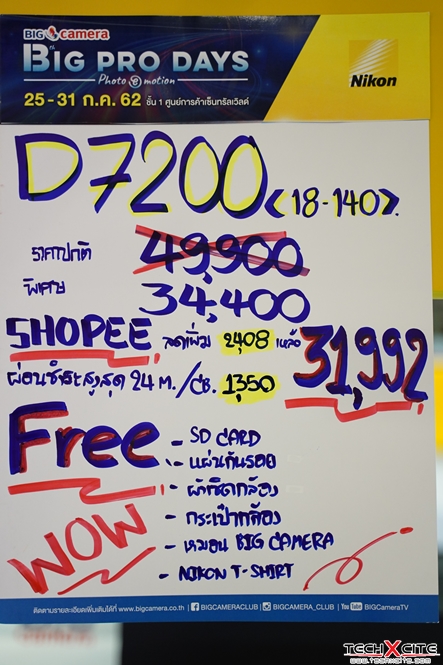 BIG camera
BIG PRO DAYS
Photo e motion
25-31 ก.ค. 62 ชั้น 1 ศูนย์การค้าเซ็นทรัลเวิลด์
Nikon
D7200 <18-140>.
ราคาปกติ 49,900
พิเศษ 34,400
SHOPEE ลดเพิ่ม 2,408 เหลือ 31,992
ผ่อนชำระสูงสุด 24 M./CB. 1,350
Free - SD CARD
- แผ่นกันรอย
- ผ้าเช็ดกล้อง
- กระเป๋ากล้อง
- หมอน BIG CAMERA
- NIKON T-SHIRT
WOW
ติดตามรายละเอียดเพิ่มเติมได้ที่ www.bigcamera.co.th | BIGCAMERACLUB | BIGCAMERA_CLUB | You Tube BIGCameraTV
TECHXCITE
WWW.TECHXCITE.COM